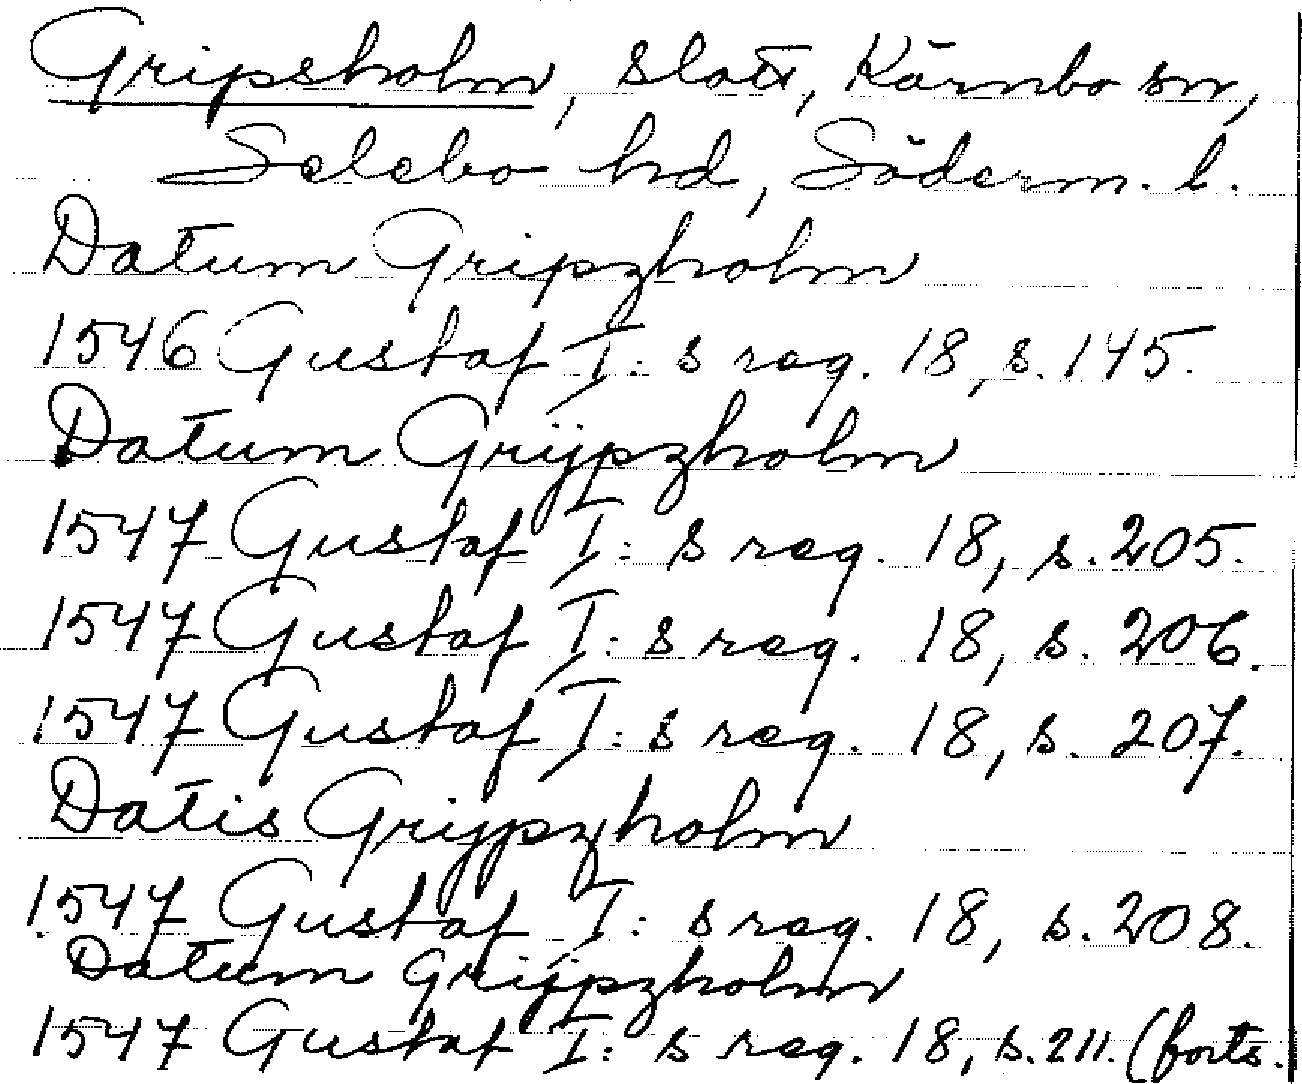 Gripsholm, slott, Kärnbo sn,
Selebo hd, Söderm. l.
Datum Gripzholm
1546 Gustaf I:s reg. 18, s. 145.
Datum Grijpzholm
1547 Gustaf I:s reg. 18, s. 205.
1547 Gustaf I:s reg. 18, s. 206.
1547 Gustaf I:s reg. 18, s. 207.
Datis Grijpzholm
1547 Gustaf I:s reg. 18, s. 208.
Datum Grijpzholm
1547 Gustaf I:s reg. 18, s. 211. (forts.